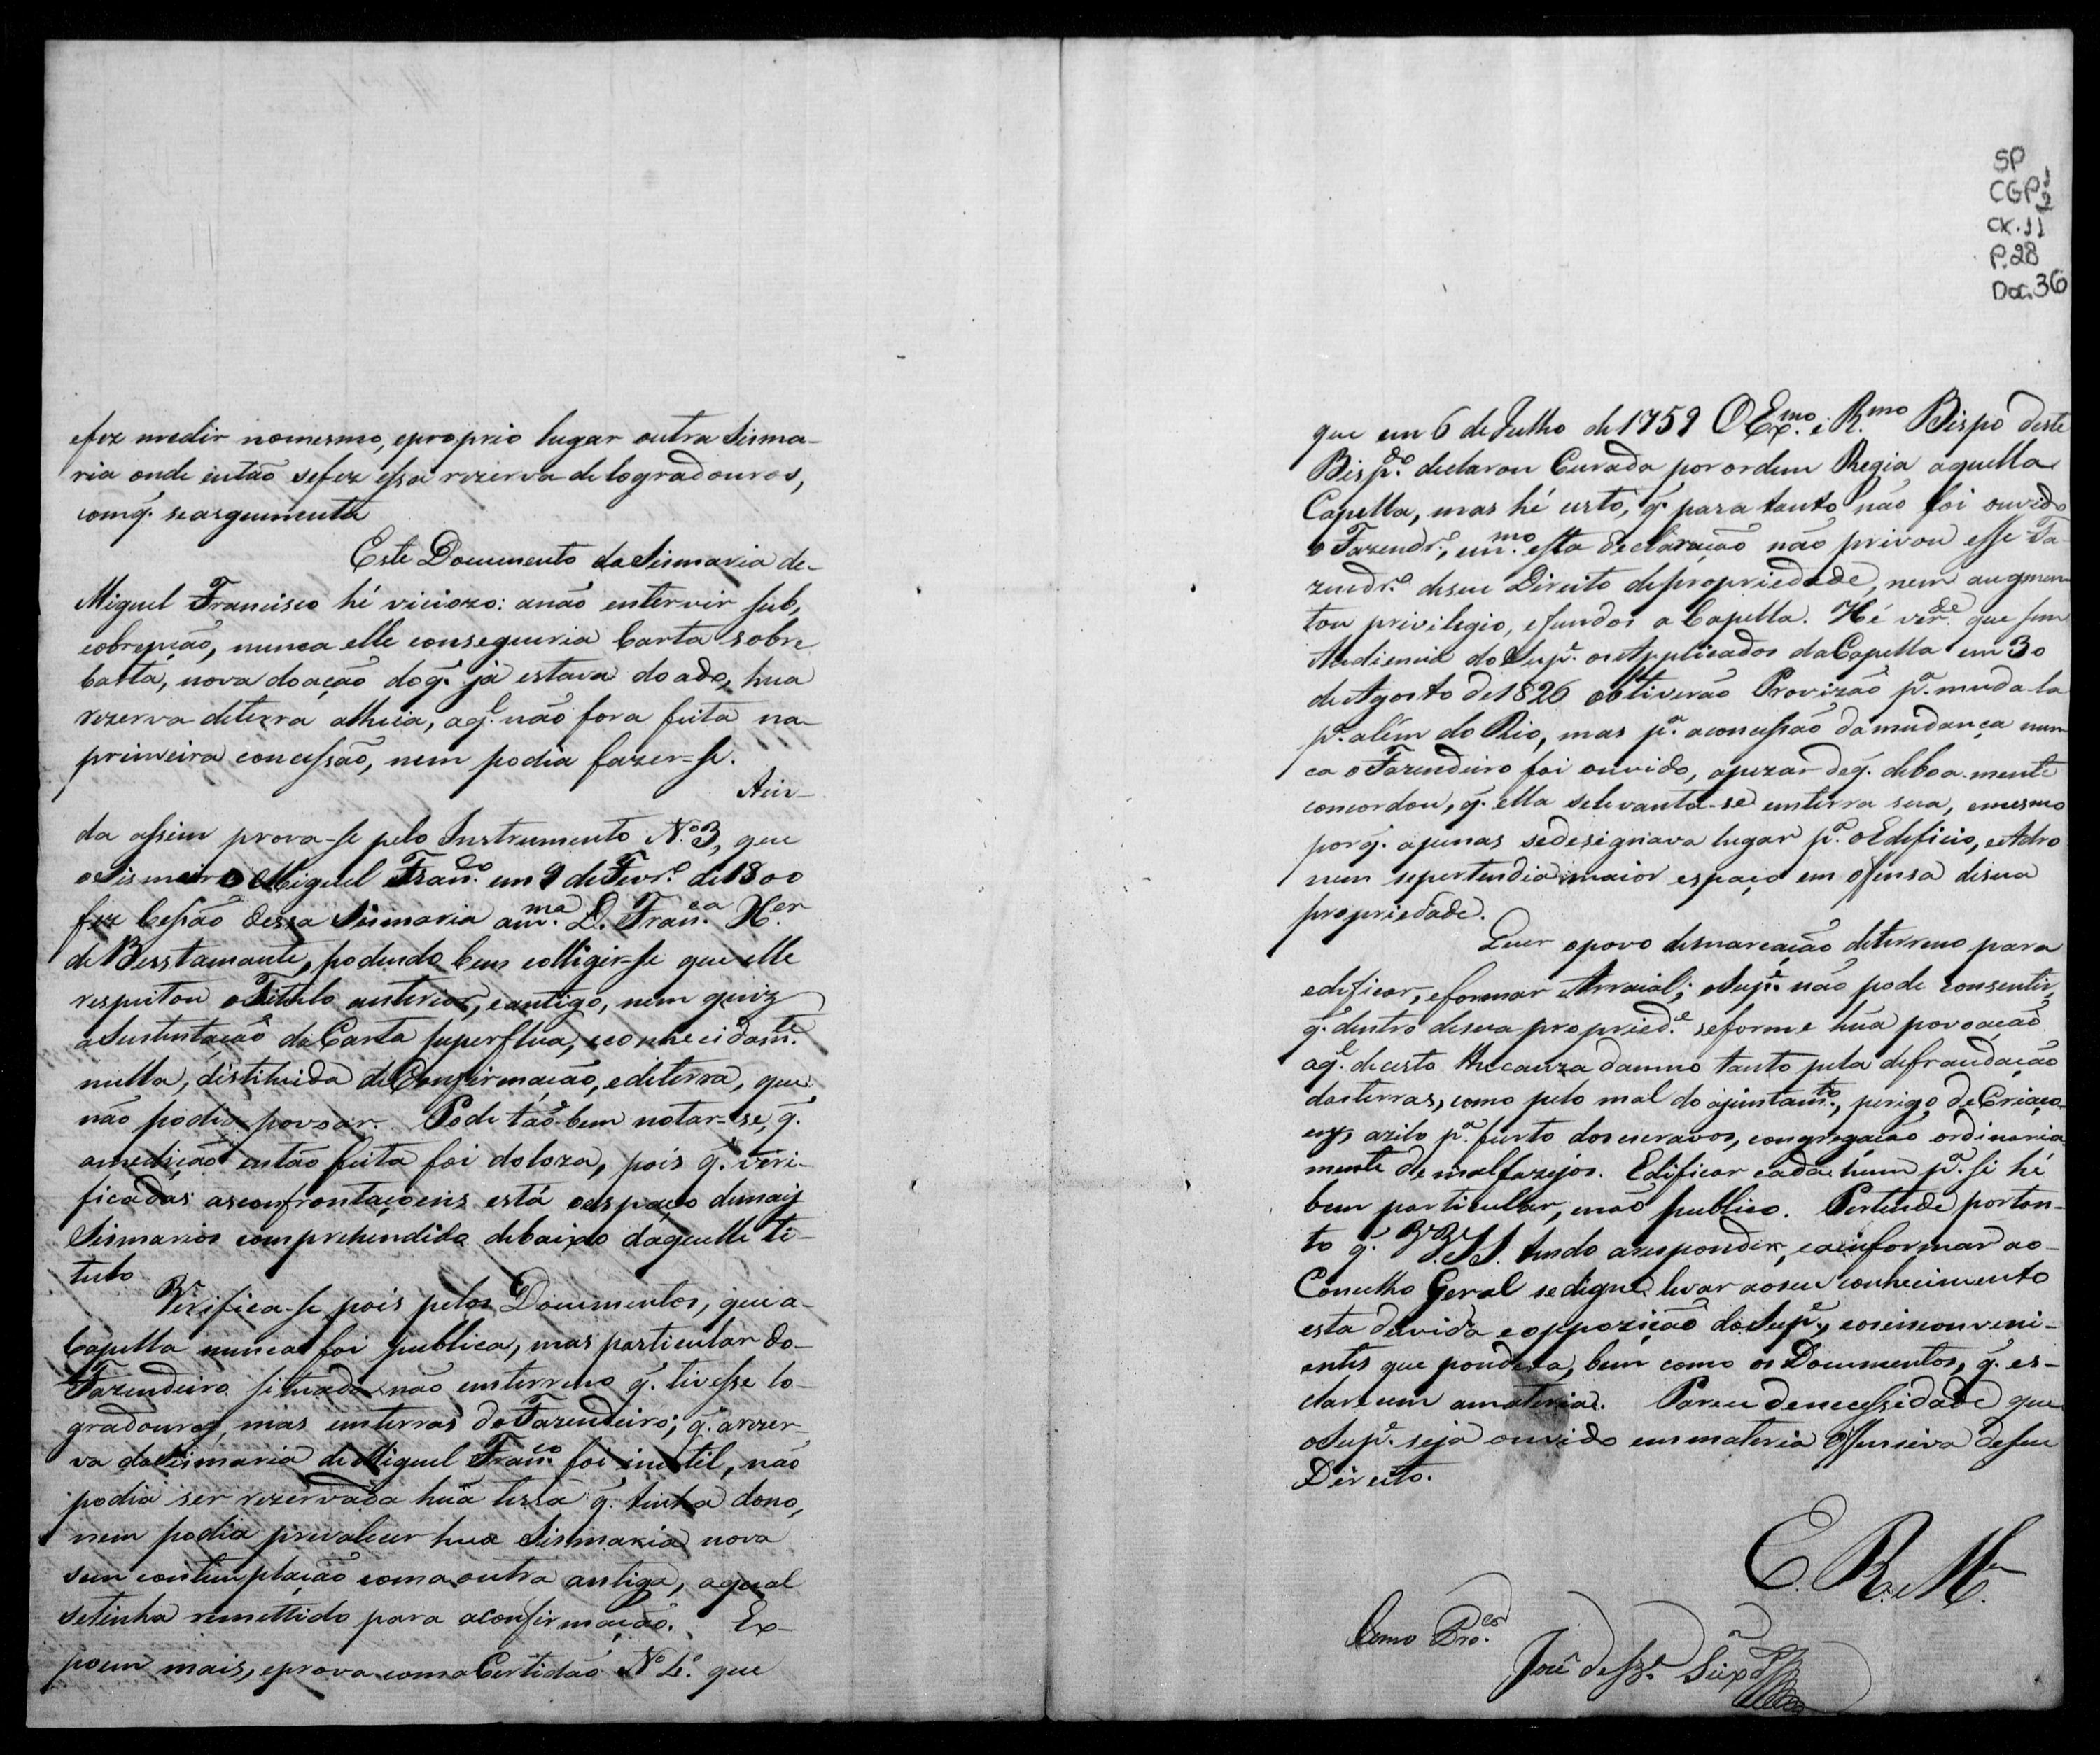 efez medir nomesmo, eproprio lugar outra Sisma-
ria onde então sefez essa rezerva de logradouros,
comq. seargumenta
Este Documento da Sismaria de
Miguel Francisco hé viciozo: anão entervir sub,
eobrepção, nunca elle conseguiria Carta sobre
Carta, nova doação doq. já estava doado, hua
rezerva deterra alheia, aql. não fora feita na
primeira concessão, nem podia fazer=se.
Ain-
da assim prova-se pelo Instrumento Nº. 3, que
oSismeiro Miguel Franco. em 9 de Fevro. de 1800
fez Cessão dessa Sismaria ama. D. Franca. Xer.
de Bustamante, podendo bem colligir-se que elle
respeitou oTitulo anterior, eantigo, nem quiz
a Sustentação da Carta superflua, econhecidamte.
nulla, distituida deConfirmação, edeterra, que
não podia povoar. Pode tão bem notar-se, q.
amedição então feita foi doloza, pois q. veri-
ficadas asconfrontaçoens está oespaço demais
Sismarias comprehendido debaixo daquelle ti-
tulo
Verifica-se pois pelos Documentos, que a
Capella nunca foi publica, mas particular do
Fazendeiro situada não emterreno q. tivesse lo-
gradouros, mas emterras do Fazendeiro; q. arezer-
va daSismaria de Miguel Franco. foi inutil, não
podia ser rezervada huã terra q. tinha dono,
nem podia prevalecer hua Sismaria nova
sem contemplação comaoutra antiga, aqual
setinha remettido para aconfirmação. Ex-
poem mais, eprova comaCertidão Nº 4º. que
SP
CGP 1
2
CX. 11
P. 28
Doc. 36
que em 6 de Julho de 1759 O Exmo. e Rmo. Bispo deste
Bispdo. declarou Curada por ordem Regia aquella
Capella, mas hé certo, q. para tanto não foi ouvido
o Fazendro., emmo. esta declaração não privou esse Fa-
zendro. deseu Direito depropriedade, nem augmen-
tou privilegio, efundos a Capella. Hé verde. que sem
Audiencia do Supe. osApplicados daCapella em 30
de Agosto de 1826 obtiverão Provizão pa. muda-la
pa. além do Rio, mas pa. aconcessão damudança nun-
ca o Fazendeiro foi ouvido, apezar deq. deboa mente
concordou, q. ella selevanta-se emterra sua, emesmo
porq. apenas sedesignava lugar pa. oEdificio, eAdro
nem sepertendia maior espaço em ofensa desua
propriedade.
Quer opovo demarcação deterreno para
edificar, eformar Arraial; oSupe. não pode consentir,
q. dentro desua propriede. seforme huã povoação
aql. decerto lhecauza damno tanto pela defraudação
dasterras, como pelo mal do ajuntamto., perigo deCriaço-
ens, azilo pa. furto dos escravos, congregação ordinaria
mente de malfazejos. Edificar cada hum pa. si hé
bem particular, enão publico. Pertende portan-
to q. VV.SS. tendo aresponder, eainformar ao
Concelho Geral sedignem levar aoseu conhecimento
esta duvida eoppozição doSupe., eosinconveni-
entes que pondera, bem como os Documentos, q. es-
clarecem amateria. Parece denecessidade que
oSupe. seja ouvido emmateria offensiva deseu
Direito.
E. R. Mce.
Como Pror.
José de